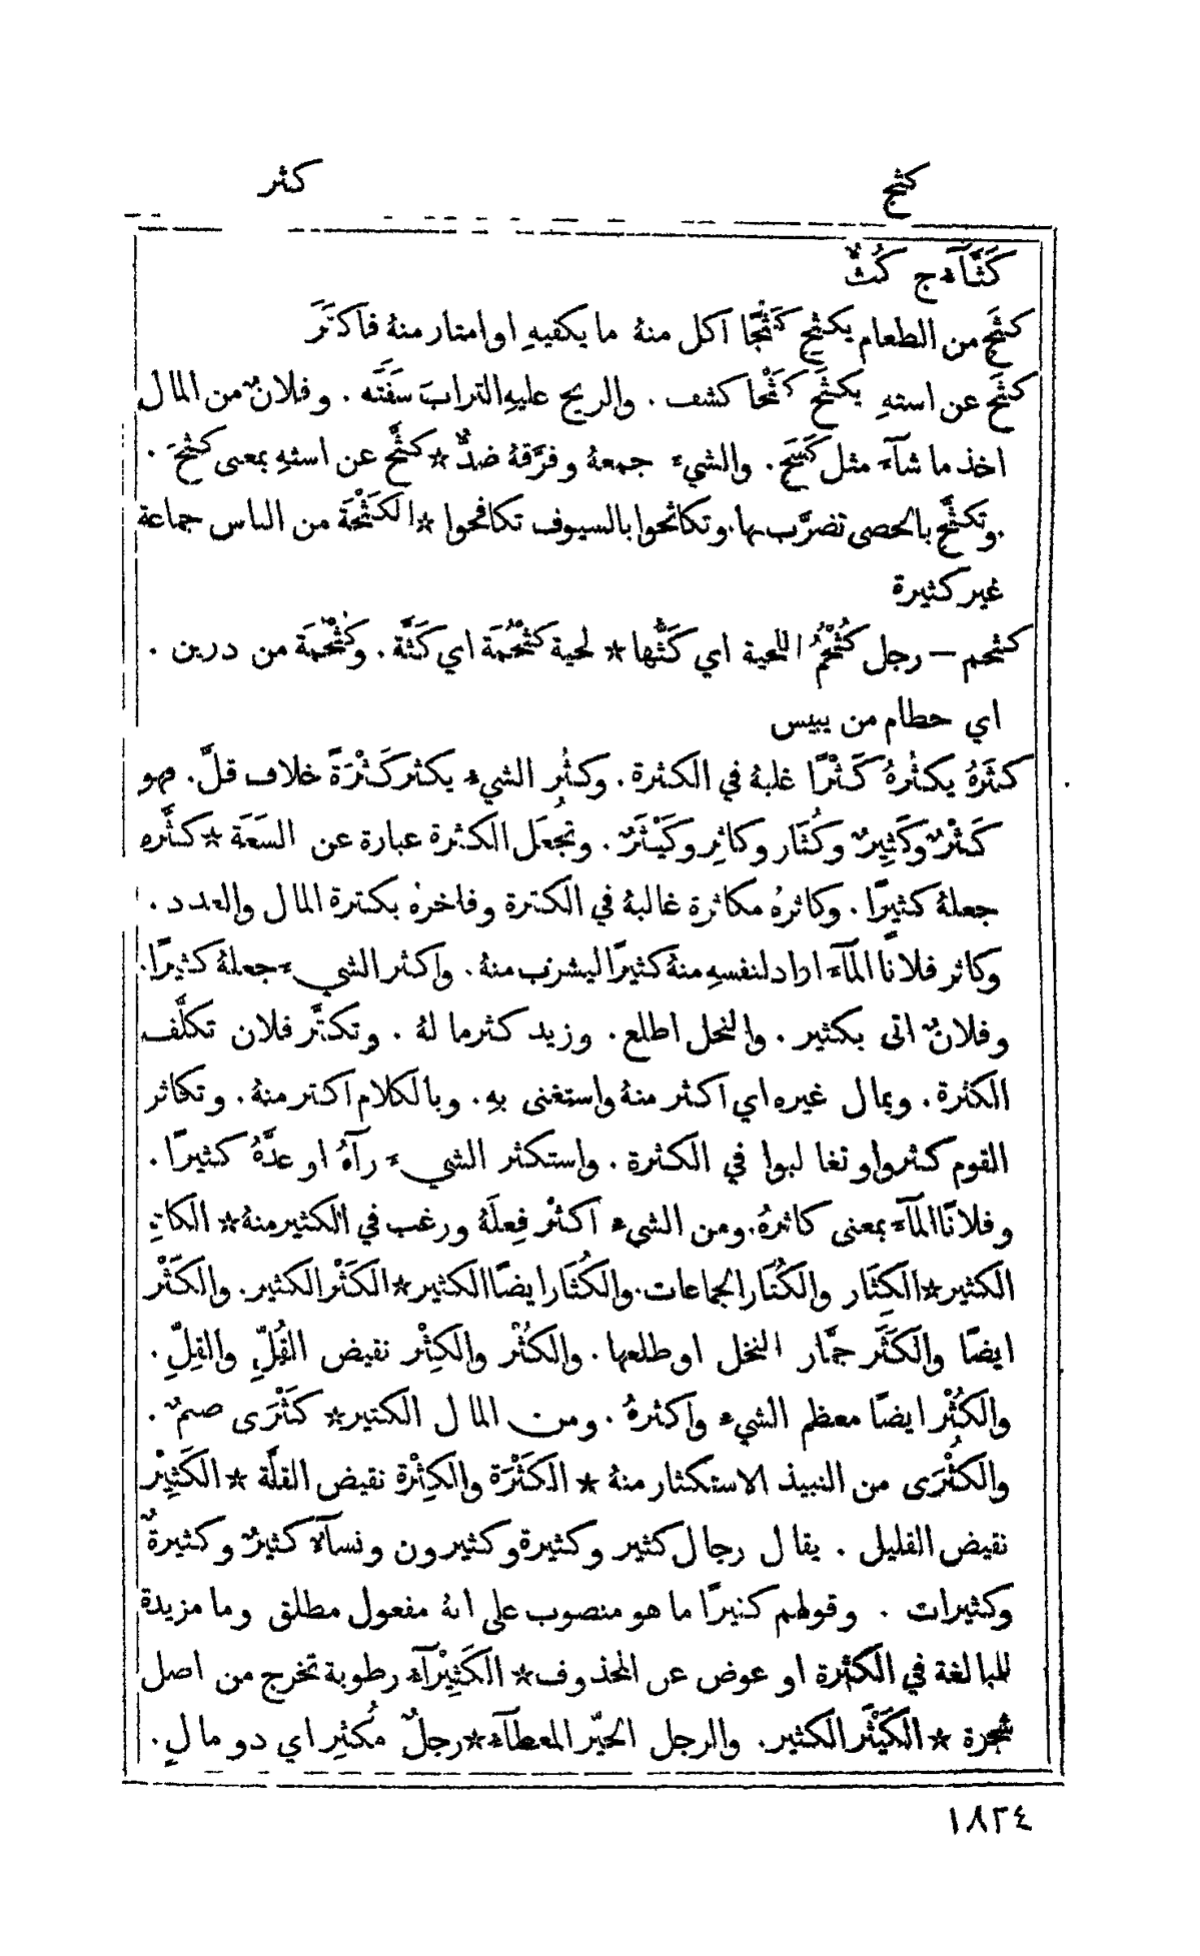 كثج
كثر
كَثَّآء ج كُثٌّ
كثَج من الطعام يكثِج كَثْجًا اكل منهُ ما يكفيهِ او امتار منهُ فاكثَرَ
كثَح عن استهِ يكثَح كَثْحًا كشف . والريح عليهِ التراب سَفَتْه . وفلانٌ من المال
اخذ ما شآء مثل كَسَحَ . والشيء جمعهُ وفرَّقهُ ضدٌّ * كثَّح عن استهِ بمعنى كثَحَ .
وتكثَّح بالحصى تضرَّب بها . وتكاثحوا بالسيوف تكافحوا * الكَثْحَة من الناس جماعة
غير كثيرة
كثحم – رجل كُثْحُمُ اللحية اي كَثُّها * لحية كُثْحُمَة اي كَثَّة . وكُثْحُمَة من درين .
اي حطام من يبيس
كثَرَهُ يكثُرهُ كَثْرًا غلبهُ في الكثرة . وكثُر الشيء يكثر كَثْرَةً خلاف قلَّ . فهو
كَثْرٌ وكَثِيرٌ وكُثَار وكاثِر وكَيْثَرٌ . وتُجعَل الكثرة عبارة عن السَعَة * كثَّره
جعلهُ كثيرًا . وكاثرهُ مكاثرة غالبهُ في الكثرة وفاخرهُ بكثرة المال والعدد .
وكاثر فلانًا المآء اراد لنفسهِ منهُ كثيرًا ليشرب منهُ . واكثر الشيء جعلهُ كثيرًا .
وفلانٌ اتى بكثير . والنخل اطلع . وزيد كثر ما لهُ . وتكثَّر فلان تكلَّف
الكثرة . وبمال غيره اي اكثر منهُ واستغنى بهِ . وبالكلام اكثر منهُ . وتكاثر
القوم كثروا وتغالبوا في الكثرة . واستكثر الشيء رآهُ او عدَّهُ كثيرًا .
وفلانًا المآء بمعنى كاثرهُ . ومن الشيء اكثَرَ فِعلَهُ ورغب في الكثير منهُ * الكاثِر
الكثير * الكِثَار والكُثَار الجماعات . والكُثَار ايضًا الكثير * الكَثْر الكثير . والكَثْر
ايضًا والكَثَر جُمَّار النخل او طلعها . والكُثْر والكِثْر نقيض القُلّ والقِلّ .
والكُثْر ايضًا معظم الشيء واكثرهُ . ومن المال الكثير * كَثْرَى صنمٌ .
والكُثْرَى من النبيذ الاستكثار منهُ * الكَثْرَة والكِثْرة نقيض القلَّة * الكَثِيْر
نقيض القليل . يقال رجال كثير وكثيرة وكثيرون ونسآء كثيرٌ وكثيرةٌ
وكثيرات . وقولهم كثيرًا ما هو منصوب على انهُ مفعول مطلق وما مزيدة
للمبالغة في الكثرة او عوض عن المحذوف * الكَثِيْرآء رطوبة تخرج من اصل
شجرة * الكَيْثَر الكثير . والرجل الخيّر المعطآء * رجلٌ مُكْثِر اي ذو مالٍ .
١٨٢٤